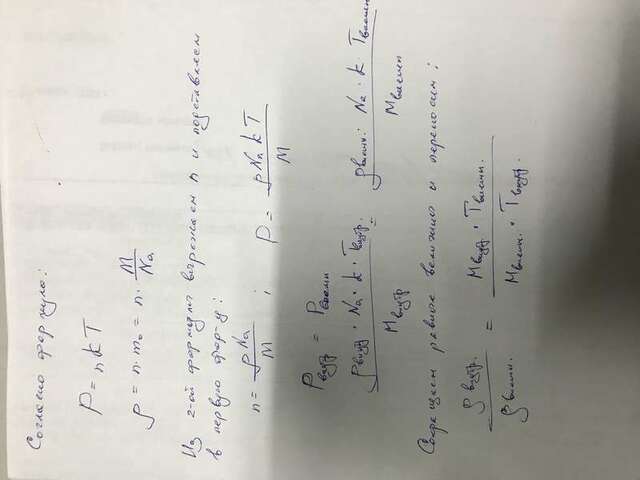 Согласно формуле:
P = nkT
ρ = n · m₀ = n · M/Na
Из 2-ой формулы выражаем n и подставляем
в первую фор-у:
n = ρNa/M ; P = ρNa kT/M
Pвнутр = Pвнешн
ρвнутр · Na · k · Tвнутр./Mвнутр = ρвнешн · Na · k · Tвнешн/Mвнешн
Сокращаем равные величины и переносим:
ρвнутр./ρвнешн. = Mвнутр · Tвнешн./Mвнешн. · Tвнутр.